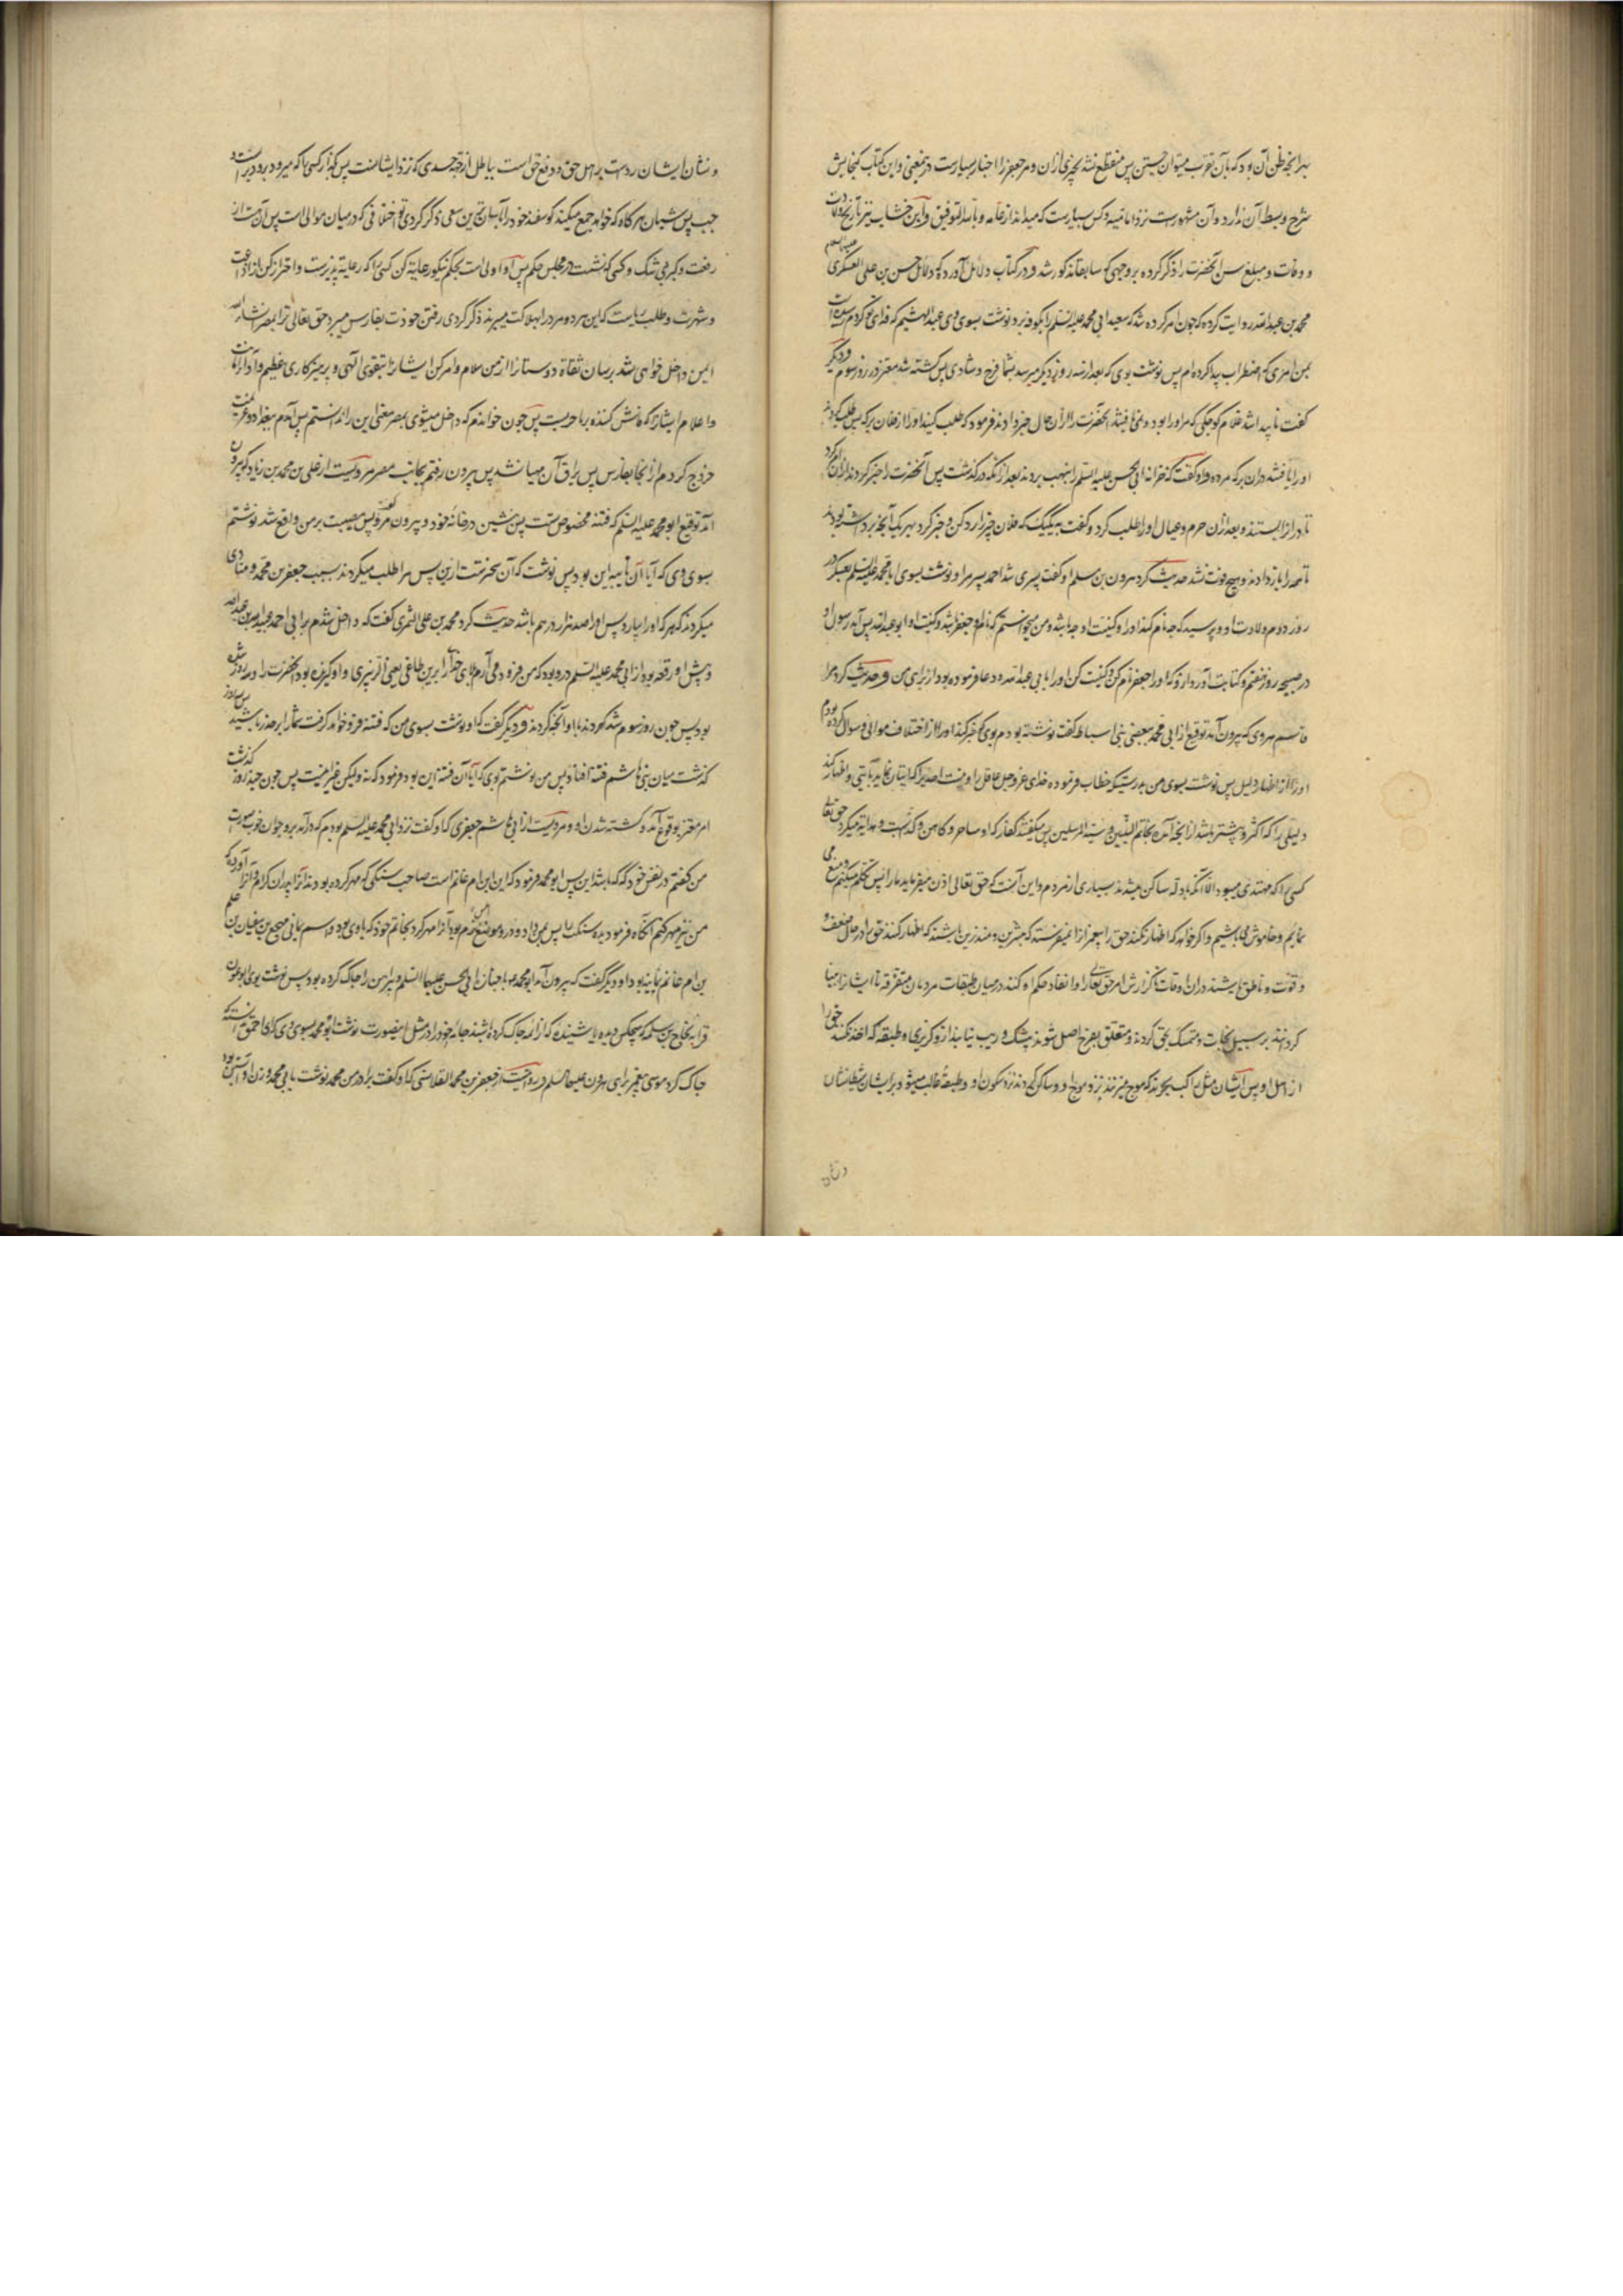 برانچه ظن آن بود که بآن تقرب میتوان جستن پس منقطع نشد بچیزی ازان و مر جعفر را اخبار بسیارست درین معنی و این کتاب گنجایش
شرح و بسط آن ندارد و آن مشهورست نزد امامیه و کس بسیارست که میدانند از عامه و بالله التوفیق و ابن خشاب نیز تاریخ ولادت
و وفات و مبلغ سن آنحضرت را ذکر کرده بروجهی که سابقا مذکور شد و در کتاب دلایل آورده که دلایل حسن بن علی العسکری علیه السلام
محمد بن عبدالله روایت کرده که چون امر کرده شد که سعید ابی محمد علیه السلم را بکوفه برد نوشت بسوی وی ابو الهیثم که فدای تو گردم رسیده است
بمن امری که اضطراب پیدا کرده ام پس نوشت بوی که بعد از سه روز دیگر میرسد بشما فرج و شادی پس کشته شد معتز در روز سوم و دیگر
گفت ناپیدا شد غلام کوچکی که مر او را بود و نمی یافتند آنحضرت را از آن حال خبر دادند فرمود که طلب کنید او را از فلان برکه پس طلب کردند
او را یافتند دران برکه مرده و او گفت که خزانه ابی الحسن علیه السلم را بنهب بردند بعد از آنکه درگذشت پس آنحضرت را خبر کردند از آن امر کرد
تا در را بستند و بعد از آن حرم و عیال او را طلب کرد و گفت به یک یک که فلان چیز را رد کن و خبر کرد بهر یک آنچه برداشته بود
تا همه را باز دادند و هیچ فوت نشد حدیث کرد هرون بن مسلم او گفت پسری شد احمد پسر مرا و نوشت بسوی ابا محمد علیه السلم بعسکر در
روز دوم ولادت او و پرسید که چه نام کند او را و کنیت او چه باشد و من میخواستم که نام او جعفر باشد و کنیت او ابو عبدالله پس آمد رسول او
در صبیحه روز هفتم و کتابت آورد از و که او را جعفر نام کن و کنیت کن او را بابی عبدالله و دعا فرموده بود از برای من و حدیث کرد مرا
قاسم هروی که بیرون آمد توقیع از ابی محمد ببعضی بنی اسباط گفت نوشته بودم بوی که خبر کند او را از اختلاف موالی و سوال کرده بودم
او را از اظهار دلیل پس نوشت بسوی من بدرستیکه خطاب فرموده خدای عز وجل عاقل را و نیست احدی را که اتیان نماید بآیتی و اظهار کند
دلیلی را که اکثر و بیشتر باشد از آنچه آمده بخاتم النبیین و سید المرسلین پس میگفتند کفار که او ساحر و کاهن و کذابست و هدایت میکرد حق تعالی
کسی را که مهتدی میبود الا آنکه بادله ساکن میشدند بسیاری از مردم و این آنست که حق تعالی اذن میفرماید ما را پس تکلم میکنیم و منع می
نمایم و خاموش می باشیم و اگر خواهد که اظهار نکند حق را پیغمبران را نمیفرستد که مبشرین و منذرین باشند که اظهار کنند حق را در حال ضعف و
و قوت و ناطق باشند در ان اوقات تا گزارش امر حق تعالی را و انفاذ حکم او کنند در میان طبقات مردمان متفرقه تا ایشان را بینا
گردانند بر سبیل نجات و متمسک بحق گردند و متعلق بفرع اصل شوند بی شک و ریب نیابند از و گریزی و طبقه که اخذ نکنند حق را
از اهل او پس ایشان مثل راکب بحرند که موج میزنند نزد موج او و ساکن گردند نزد سکون او و طبقهٔ غالب میشود بر ایشان شیطان
و شان ایشان ردست بر اهل حق و دفع حق است بباطل از جهت حسدی که نزد ایشانست پس بگذار کسی را که میرود براست و
چپ پس شبان هرگاه که خواهد جمع میکند گوسفند خود را بآسان ترین سعی ذکر کردی تو اختلافی که در میان موالی است پس آن هست از
رفعت و کبر بی شک و کسی که نشست در مجلس حکم پس او اولی است بحکم نیکو رعایة کن کسی را که رعایة پذیرست و احتراز کن از اذاعت
و شهرت و طلب ریاست که این هر دو مرد را بهلاکت میبرند ذکر کردی رفتن خود را بفارس میبرد حق تعالی ترا بمصر انشاء الله
ایمن داخل خواهی شد برسان ثقاة دوستان را از من سلام و امر کن ایشان را بتقوی الهی و پرهیزکاری عظیم و ادای امانت
و اعلام ایشان که فاش کننده بما حربیست پس چون خواندم که داخل میشوی بمصر معنی این را ندانستم پس آمدم ببغداد و عزیمت
خروج کردم از آنجا بفارس پس یراق آن مهیا نشد پس بیرون رفتم بجانب مصر مرویست از علی بن محمد بن زیاد که بیرون
آمد توقیع ابو محمد علیه السلم که فتنه مخصوص تست پس بنشین در خانه خود و بیرون مرو گفت پس مصیبت بر من واقع شد نوشتم
بسوی وی که آیا آن نایبه این بود پس نوشت که آن سختترست ازین پس مرا طلب میکردند بسبب جعفر بن محمد و منادی
میکردند که هر که او را بیارد پس او را صد هزار درهم باشد حدیث کرد محمد بن علی الثمری گفت که داخل شدم بر ابی احمد عبیدالله بن عبدالله
و پیش او رقعه بود از ابی محمد علیه السلم درو بود که من فرود می آرم بلای خدا را برین طاغی یعنی الزبیری و او گیرنده بود آنحضرت را و سه روز
بود پس چون روز سوم شد کردند با او آنچه کردند و دیگر گفت که او نوشت بسوی من که فتنه فرو خواهد گرفت شما را بر حذر باشید پس سه روز
گذشت میان بنی هاشم فتنه افتاد پس من نوشتم بوی که آیا آن فتنه این بود فرمود که نه ولیکن غیر اینست پس چون چند روز گذشت
امر معتز بوقوع آمد و کشته شدن او و مرویست از ابی هاشم جعفری که او گفت نزد ابی محمد علیه السلم بودم که درآمد برو جوان خوب صورت
من گفتم در نفس خود که که باشد این پس ابو محمد فرمود که این ابن ام غانم است صاحب سنگی که مهر کرده بودند آنرا پدران کرام و آنرا آورده که
من نیز مهر کنم آنگاه فرمود بده سنگ را پس بمن داد و درو موضع املس بود آنرا مهر کرد بخاتم خود که با وی بود و اسم یمانی مهجع بن سفیان بن علم
بن ام غانم یمانیه بود او دیگر گفت که بیرون آمد ابو محمد با جنازه ابی الحسن علیهما السلم و پیراهن را چاک کرده بود پس نوشت بوی ابو عون
قرابه نجاح بن سلمه که هیچکس دیده یا شنیده که از ائمه چاک کرده باشند جامه خود را در مثل اینصورت نوشت ابو محمد بسوی وی که ای احمق
چاک کرد موسی پیغمبر برای هرون علیهما السلم و روایت از جعفر بن محمد القلانسی که او گفت برادر من محمد نوشت بابی محمد و زن او آبستن بود